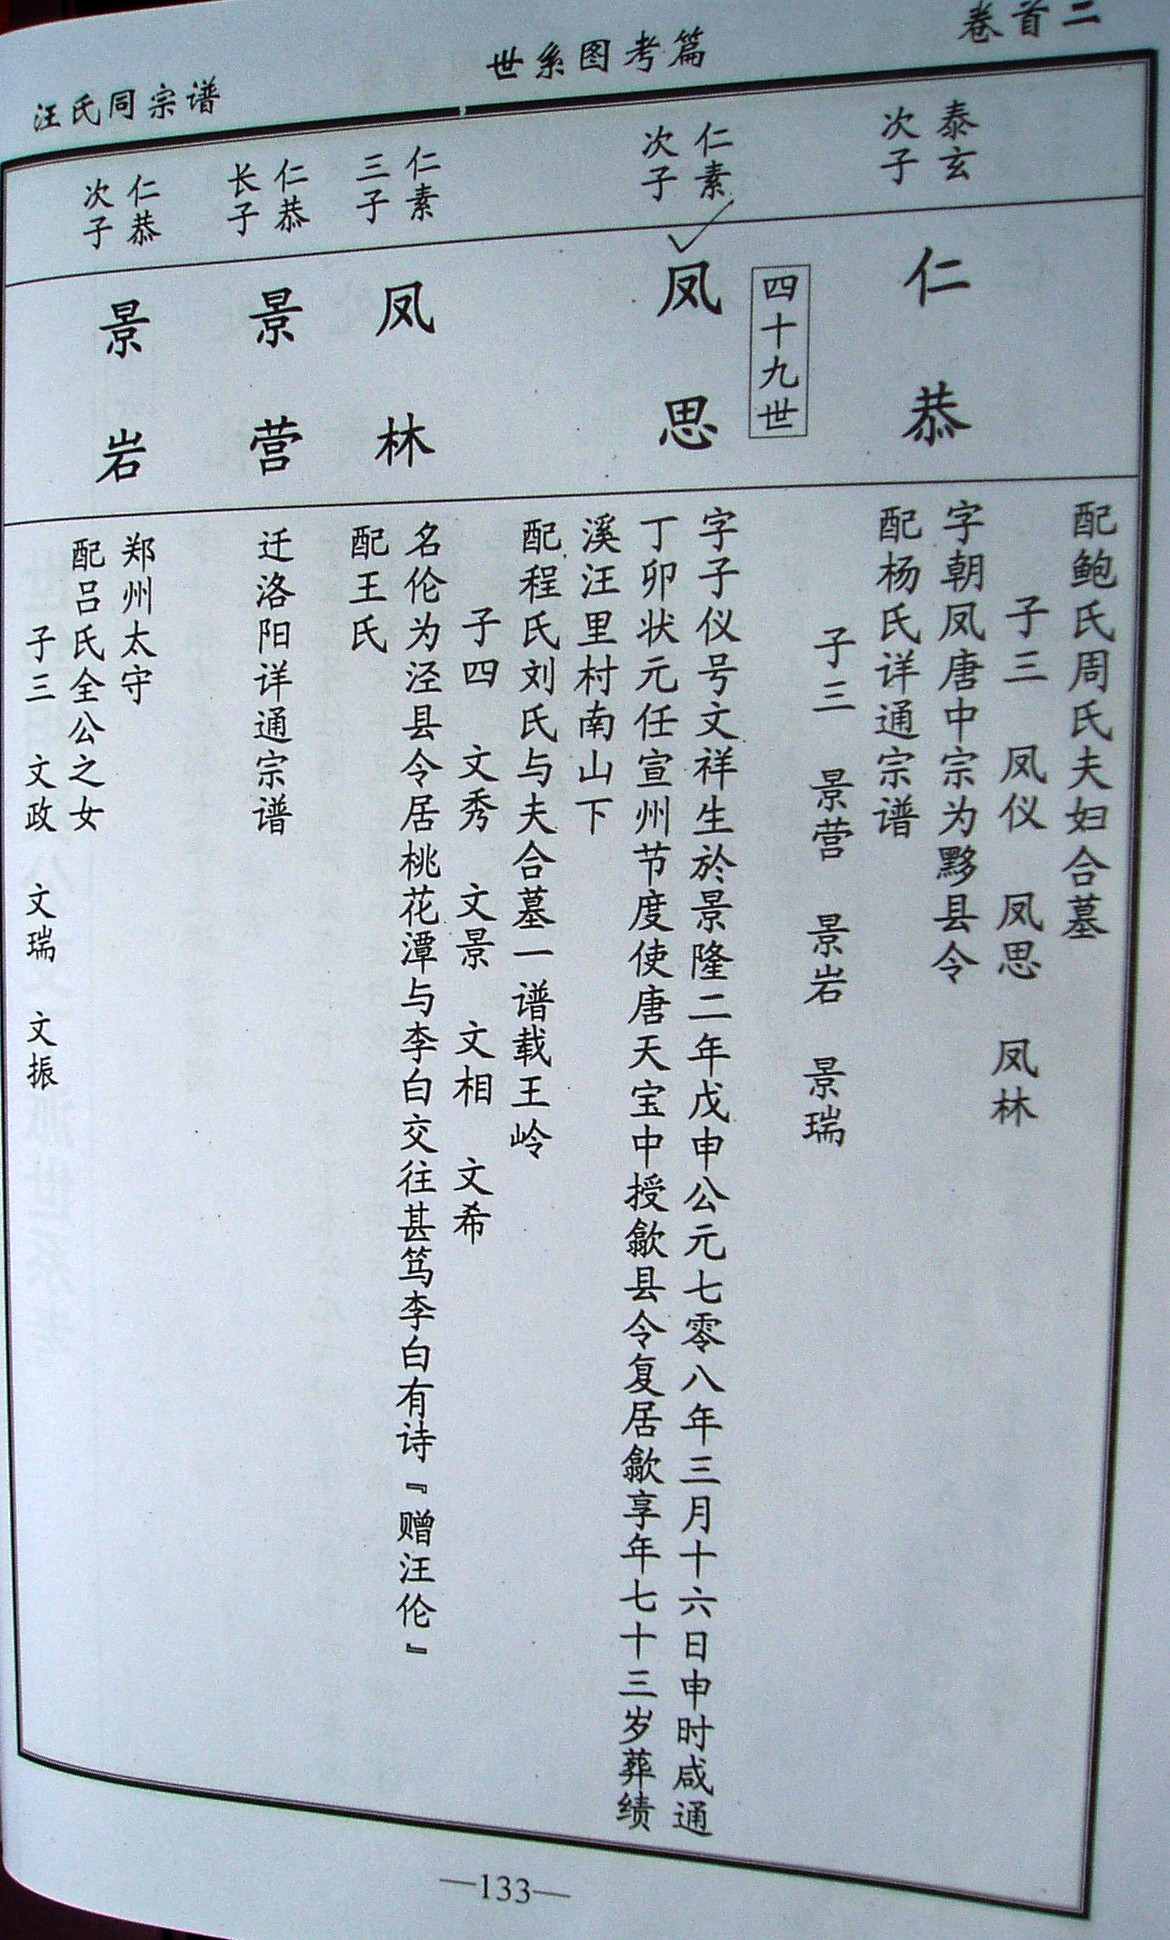 卷首二
世系图考篇
汪氏同宗谱
配鲍氏周氏夫妇合墓
子三 凤仪 凤思 凤林
泰玄
次子
仁恭
字朝凤唐中宗为黟县令
配杨氏详通宗谱
子三 景营 景岩 景瑞
四十九世
仁素
次子
凤思
字子仪号文祥生於景隆二年戊申公元七零八年三月十六日申时咸通
丁卯状元任宣州节度使唐天宝中授歙县令复居歙享年七十三岁葬绩
溪汪里村南山下
配程氏刘氏与夫合墓一谱载王岭
子四 文秀 文景 文相 文希
仁素
三子
凤林
名伦为泾县令居桃花潭与李白交往甚笃李白有诗『赠汪伦』
配王氏
仁恭
长子
景营
迁洛阳详通宗谱
仁恭
次子
景岩
郑州太守
配吕氏全公之女
子三 文政 文瑞 文振
—133—